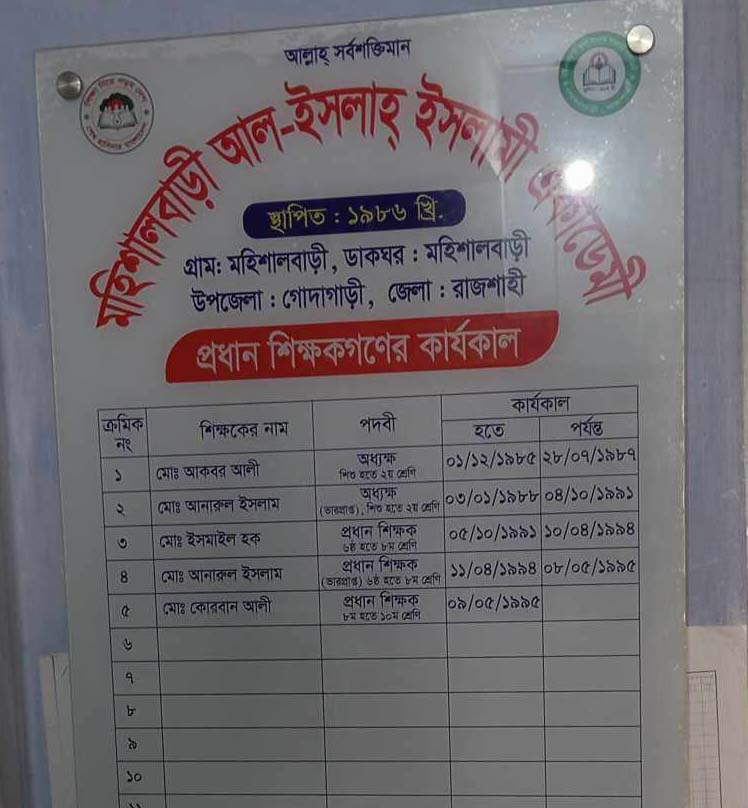 আল্লাহ্ সর্বশক্তিমান
মহিশালবাড়ী আল-ইসলাহ্ ইসলামী একাডেমী
স্থাপিত : ১৯৮৬ খ্রি.
গ্রাম: মহিশালবাড়ী, ডাকঘর : মহিশালবাড়ী
উপজেলা : গোদাগাড়ী, জেলা : রাজশাহী
প্রধান শিক্ষকগণের কার্যকাল
ক্রমিক নং শিক্ষকের নাম পদবী কার্যকাল
হতে পর্যন্ত
১ মোঃ আকবর আলী অধ্যক্ষ ০১/১২/১৯৮৫ ২৮/০৭/১৯৮৭
শিশু হতে ২য় শ্রেণি
২ মোঃ আনারুল ইসলাম অধ্যক্ষ ০৩/০১/১৯৮৮ ০৪/১০/১৯৯১
(ভারপ্রাপ্ত), শিশু হতে ২য় শ্রেণি
৩ মোঃ ইসমাইল হক প্রধান শিক্ষক ০৫/১০/১৯৯১ ১০/০৪/১৯৯৪
৬ষ্ঠ হতে ৮ম শ্রেণি
৪ মোঃ আনারুল ইসলাম প্রধান শিক্ষক ১১/০৪/১৯৯৪ ০৮/০৫/১৯৯৫
(ভারপ্রাপ্ত) ৬ষ্ঠ হতে ৮ম শ্রেণি
৫ মোঃ কোরবান আলী প্রধান শিক্ষক ০৯/০৫/১৯৯৫
৮ম হতে ১০ম শ্রেণি
৬
৭
৮
৯
১০